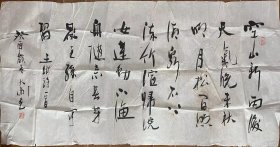 空山新雨後
天氣晚來秋
明月松間照
清泉石上
流竹喧歸浣
女蓮動下漁
舟隨意春芳
歇王孫自可
留 王維詩一首